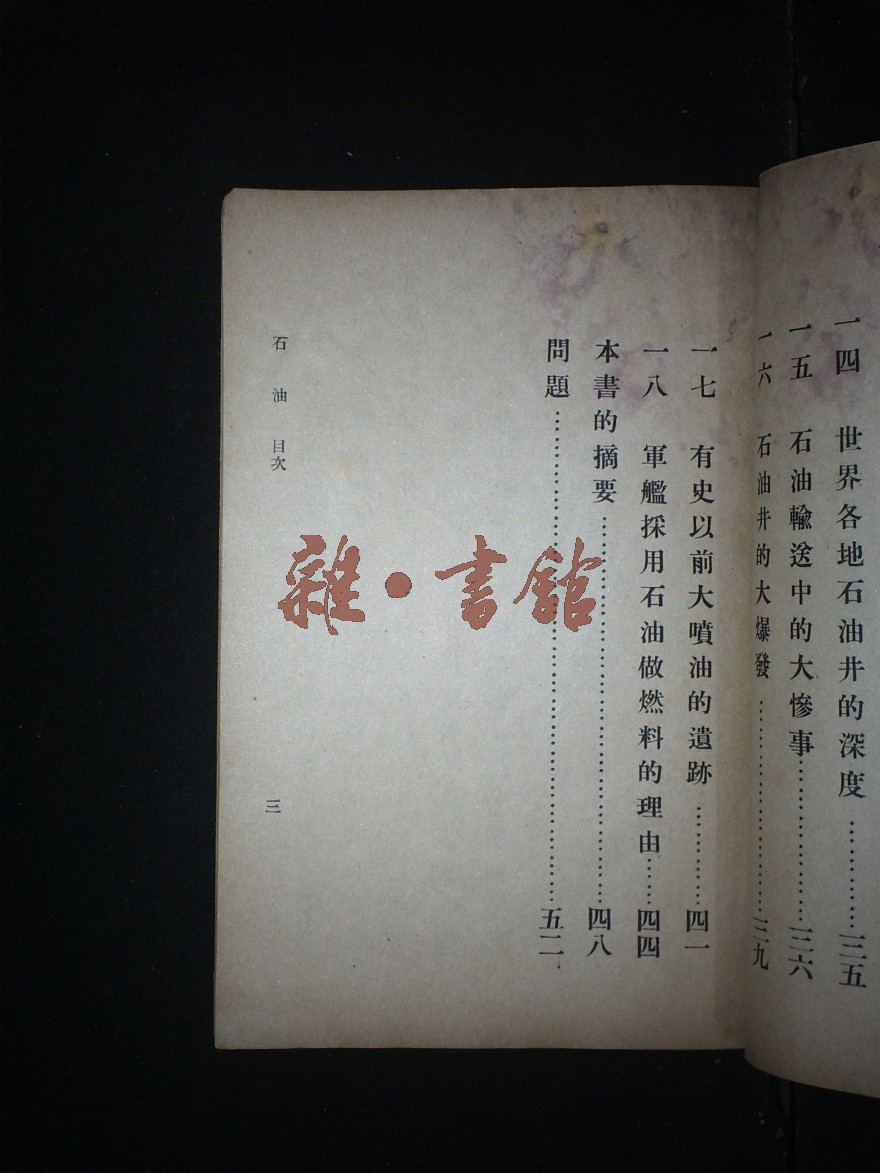 一四 世界各地石油井的深度…………三五
一五 石油輸送中的大慘事…………三六
一六 石油井的大爆發…………三九
一七 有史以前大噴油的遺跡…………四一
一八 軍艦採用石油做燃料的理由……四四
本書的摘要…………四八
問題…………五二
石油 目次
三
雜·書館